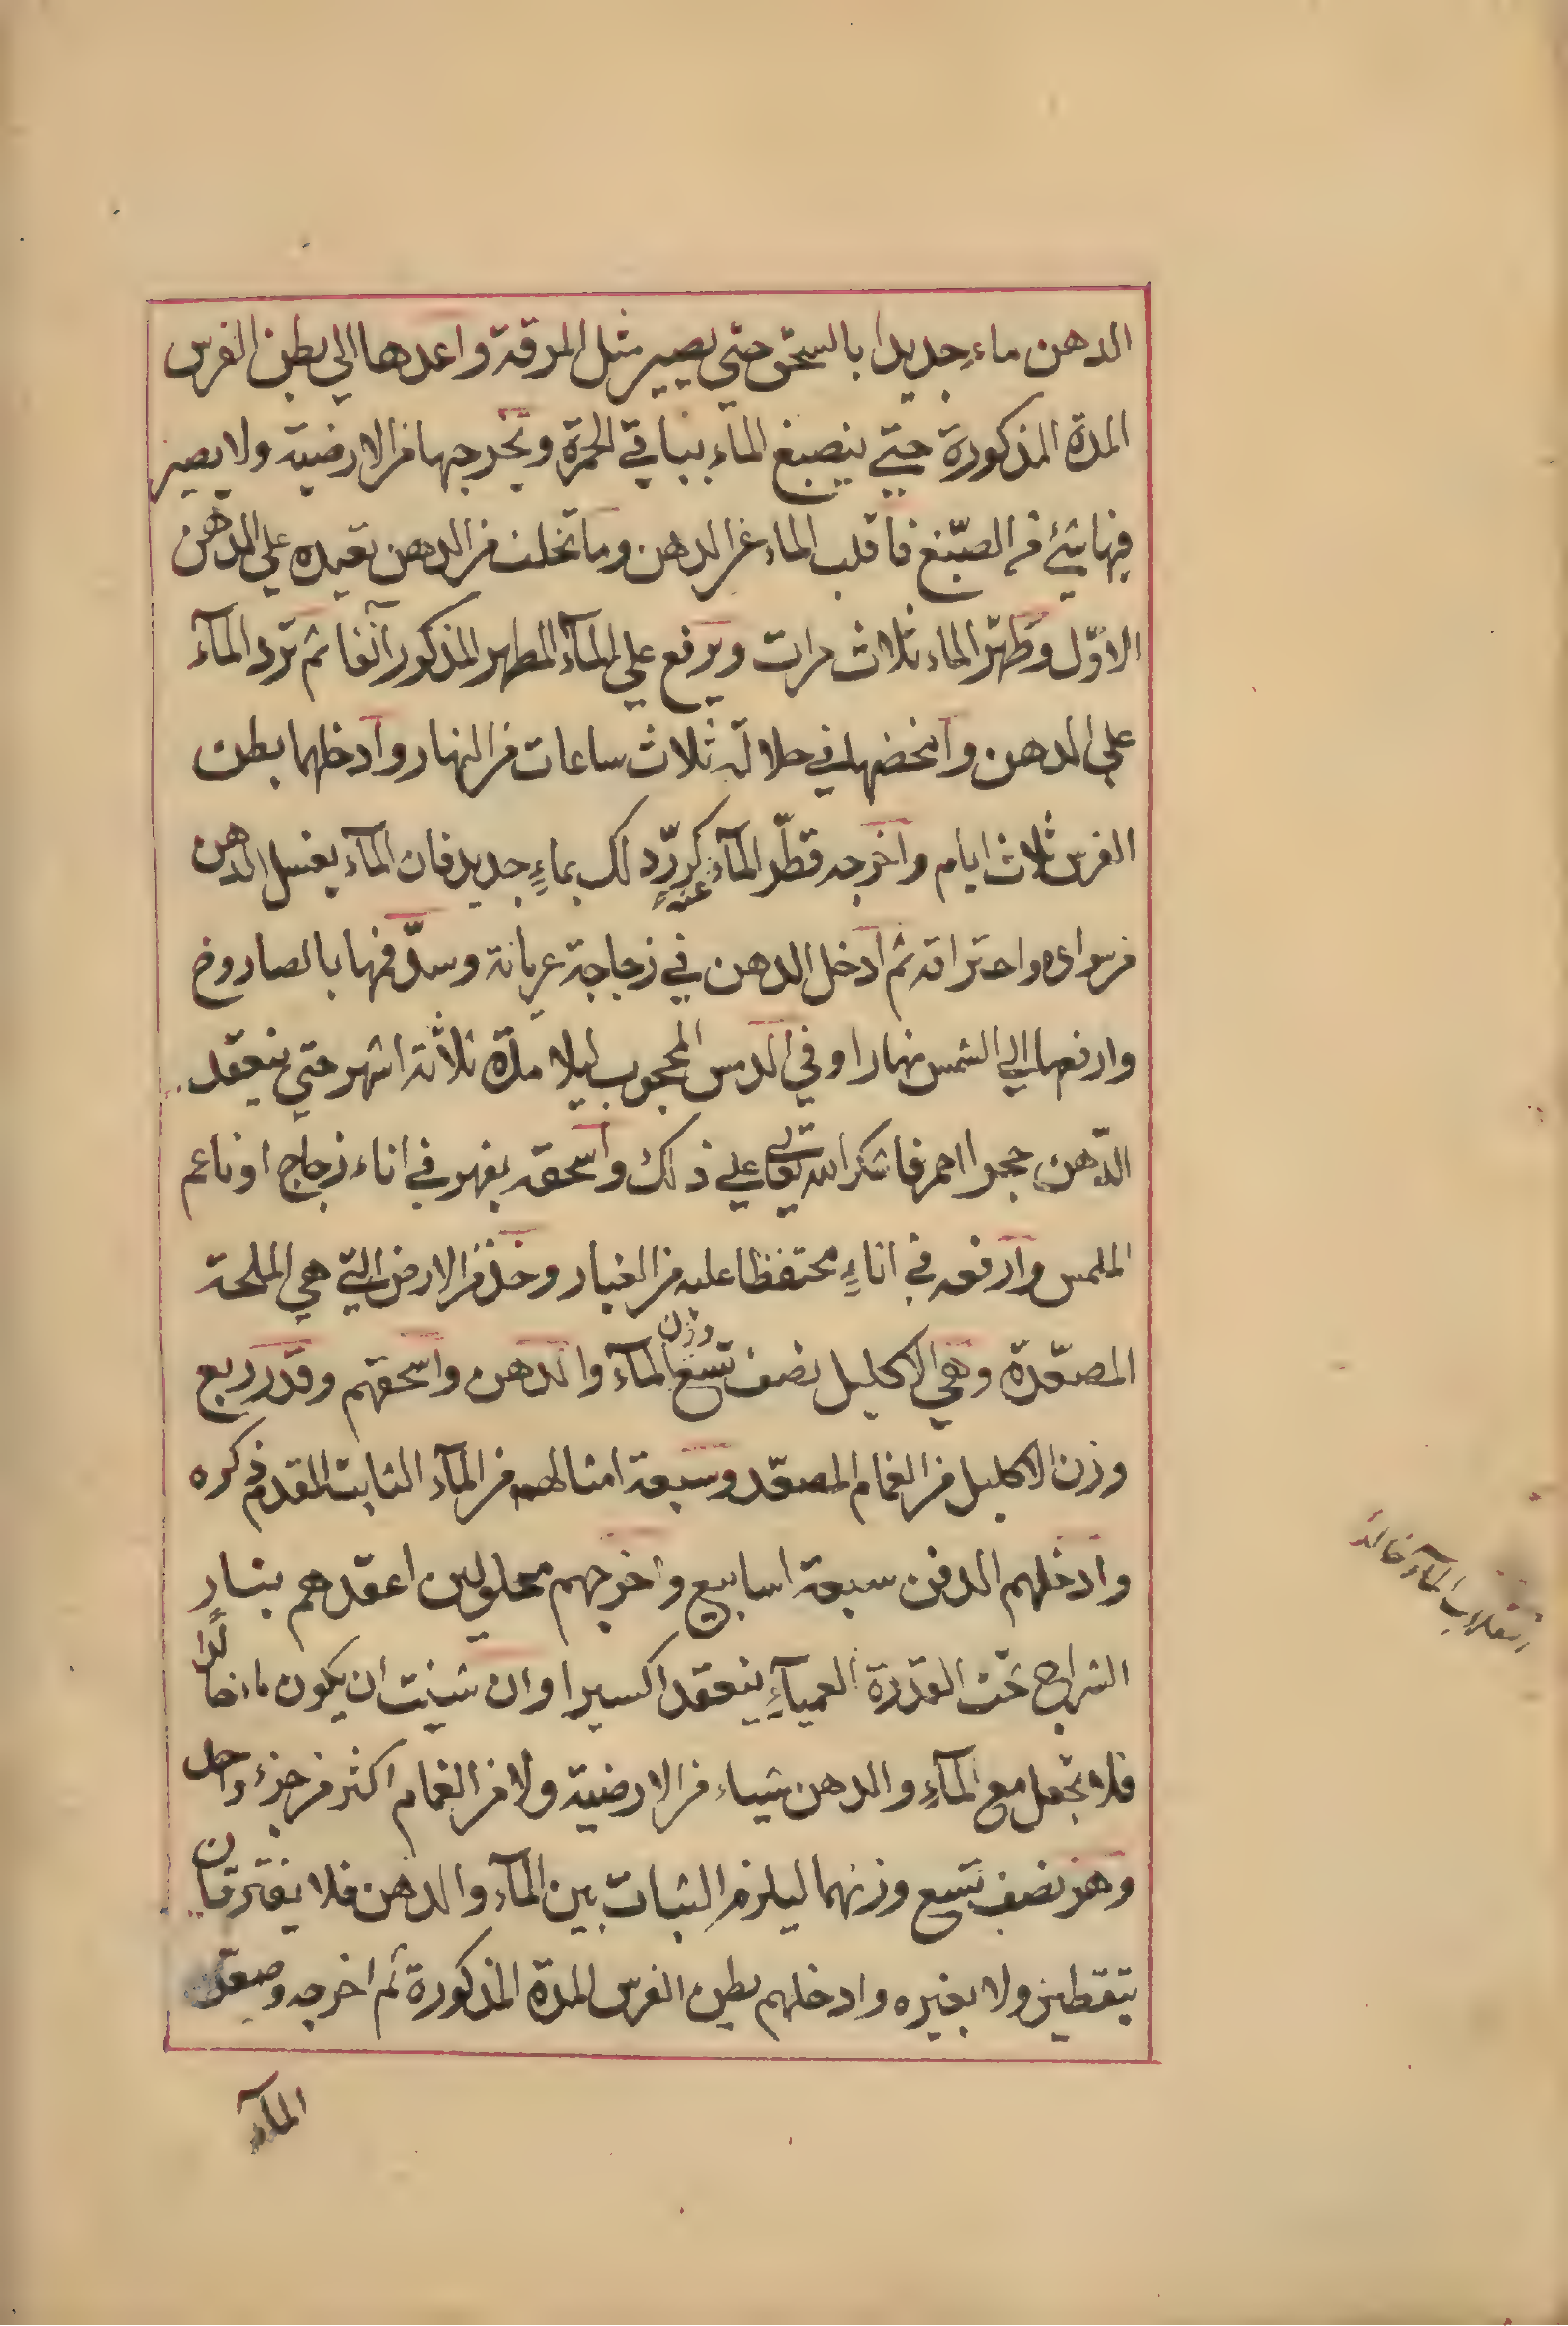 الدهن ماء جديدا بالسحق حتي يصير مثل المرقة واعدها الي بطن الفرس
المدة المذكورة حتي ينصبغ الماء بباقي الحمرة وتخرجها من الارضية ولا يصير
فيها شئ من الصبّغ فاقلب الماء عن الدهن وما تخلف من الدهن تعيده علي الدهن
الاوّل وطهّر الماء ثلاث مرات ويرفع علي المآء المطهر المذكور آنفا ثم ترد المآء
علي الدهن وامخضها في حلالة ثلاث ساعات من النهار وادخلهما بطن
الفرس ثلاث ايام واخرجه قطّر المآء عنه كررّ ذلك بماءٍ جديد فان المآء يغسل الدهن
من سواده واحتراقه ثم ادخل الدهن في زجاجة عريانة وسدّ فمها بالصاروخ
وارفعها الي الشمس نهارا وفي الدمس المحجوب ليلا مدّة ثلاثة اشهر حتي ينعقد
الدّهن حجرا احمر فاشكر الله تعالي علي ذلك واسحقه بفهر في اناء زجاج او ناعم
الملمس وارفعه في اناءٍ محتفظا عليه من الغبار وخذ من الارض التي هي الملحة
المصعّدة وهي الاكليل نصف تسع وزن المآء والدهن واسحقهم وقدر ربع
وزن الاكليل من الغمام المصعّد وسبعة امثالهم من المآء الثابت المقدم ذكره
وادخلهم الدفن سبعة اسابيع واخرجهم محلولين اعقدهم بنارٍ
السّراج تحت القدرة العميآءِ ينعقد اكسيرا وان شيئت ان يكون ماء خالدًا
فلا تجعل مع المآءِ والدهن شياء من الارضية ولا من الغمام اكثر من جزء واحد
وهو نصف تسع وزنهما ليلزم الثبات بين المآء والدهن فلا يفترقان
بتقطير ولا بغيره وادخلهم بطن الفرس المدة المذكورة ثم اخرجه وصعّد
المآء
انقلاب المآء خالدٌ